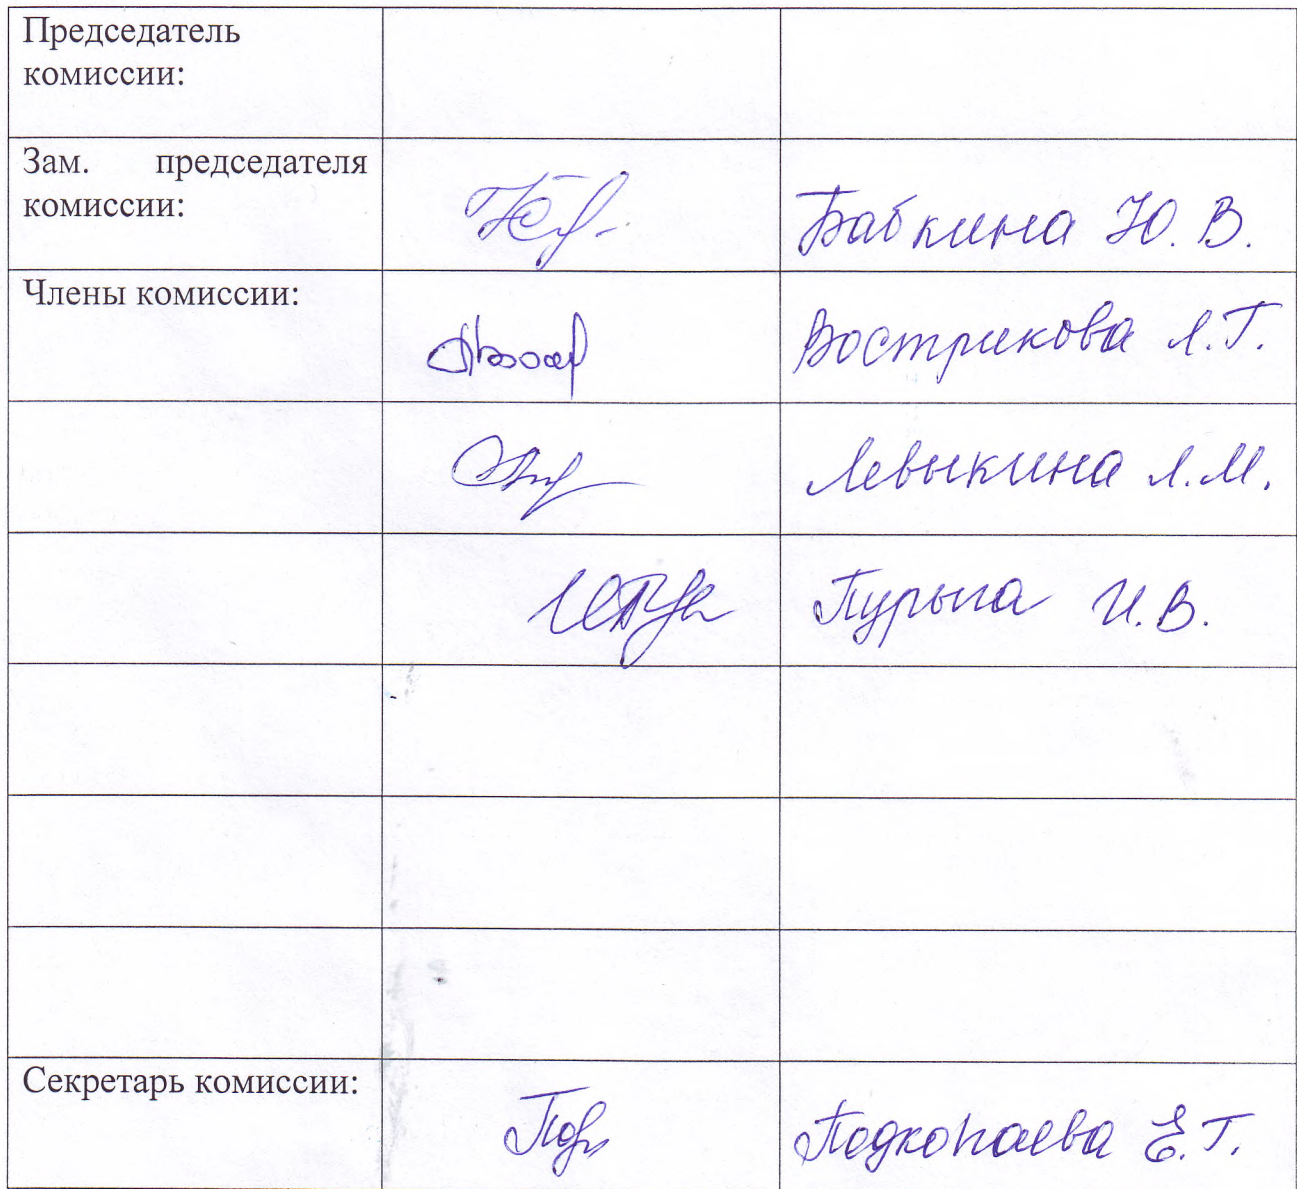 Председатель
комиссии:
Зам. председателя
комиссии:
Бабкина Ю. В.
Члены комиссии:
Вострикова Л.Г.
Левыкина Л.М.
Пурыга И.В.
Секретарь комиссии:
Подкопаева Е.Г.